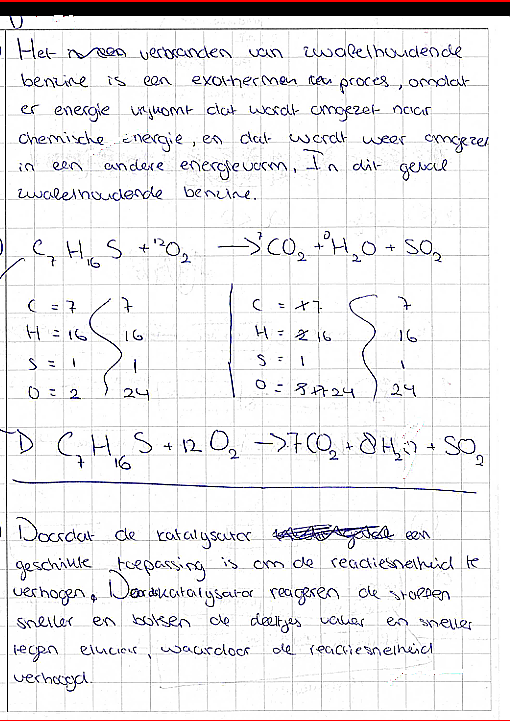 Het verbranden van zwavelhoudende
benzine is een exothermen proces, omdat
er energie vrijkomt dat wordt omgezet naar
chemische energie, en dat wordt weer omgezet
in een andere energievorm. In dit geval
zwavelhoudende benzine.
C₇H₁₆S + 12O₂ → 7CO₂ + 8H₂O + SO₂
C = 7 7 C = 7 7
H = 16 16 H = 16 16
S = 1 1 S = 1 1
O = 2 24 O = 24 24
D C₇H₁₆S + 12O₂ → 7CO₂ + 8H₂O + SO₂
Doordat de katalysator een
geschikte toepassing is om de reactiesnelheid te
verhogen. Door katalysator reageren de stoffen
sneller en botsen de deeltjes vaker en sneller
tegen elkaar, waardoor de reactiesnelheid
verhoogd.